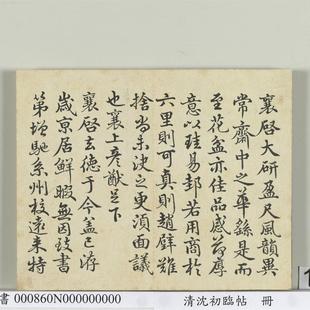 襄啓大研盈尺風韻異
常齋中之華繇是而
至花盆亦佳品感荷厚
意以珪易邽若用商於
六里則可真則趙璧難
捨尚未決之更須面議
也襄上彦猷足下
襄啓玄德于今盖已洊
歲京居鮮暇無因致書
第增馳系州校遠来特
書 000860N000000000
清沈初臨帖 冊